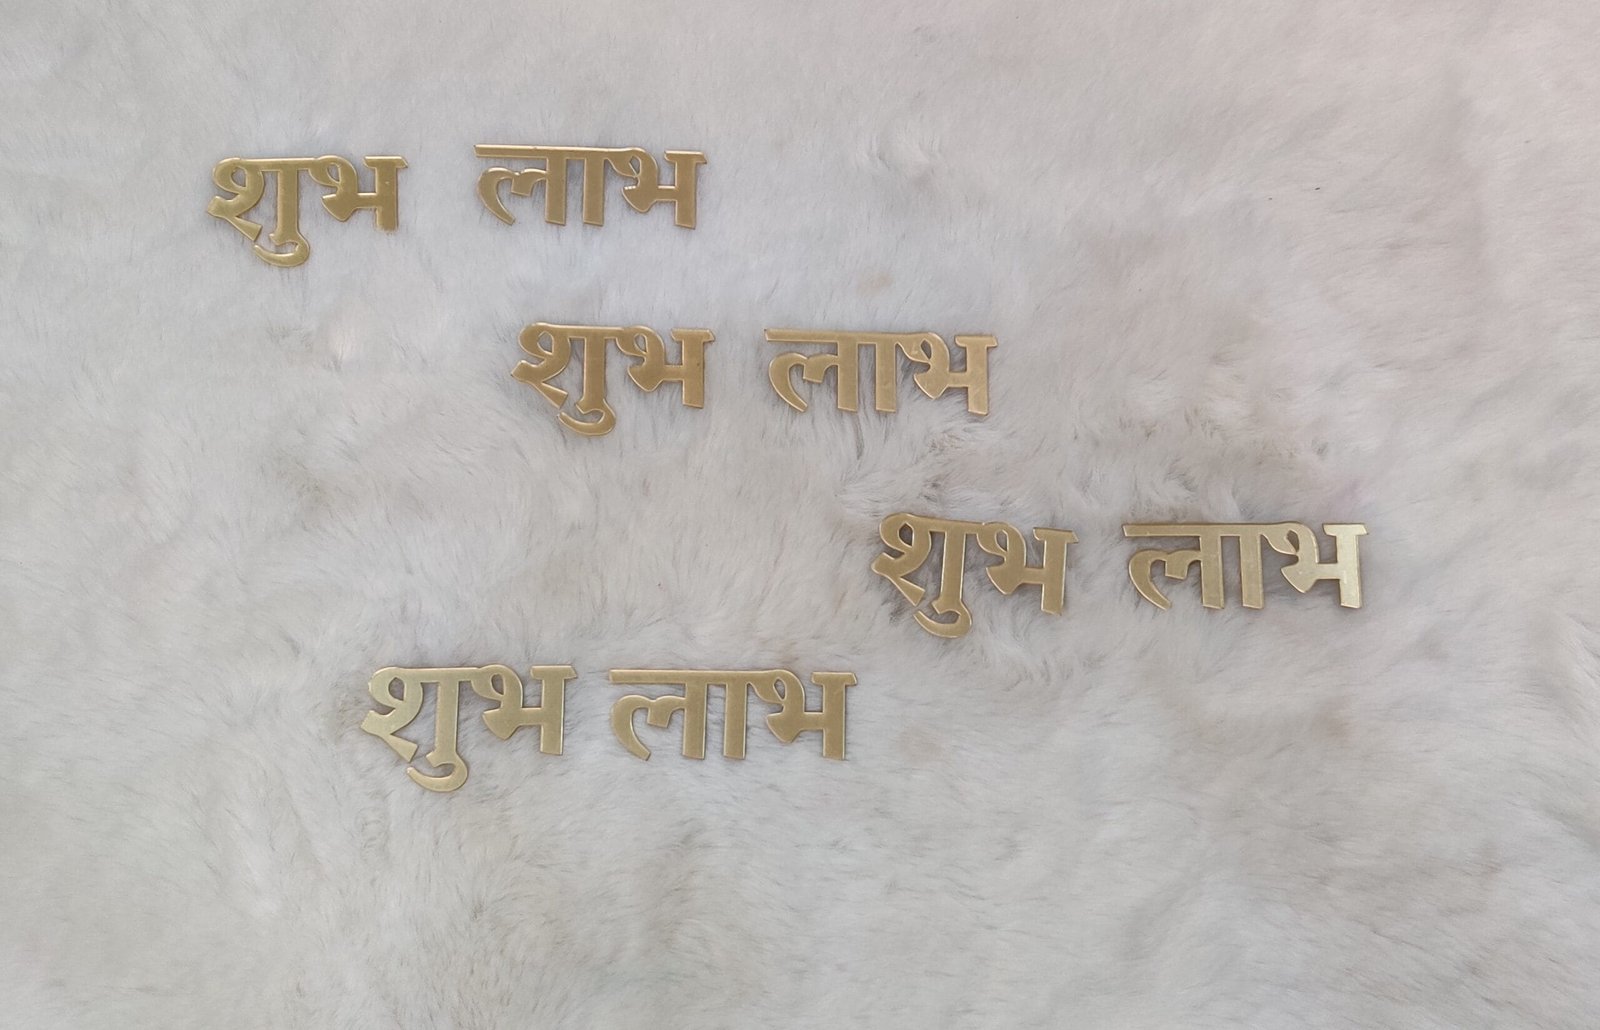 शुभ लाभ
शुभ लाभ
शुभ लाभ
शुभ लाभ